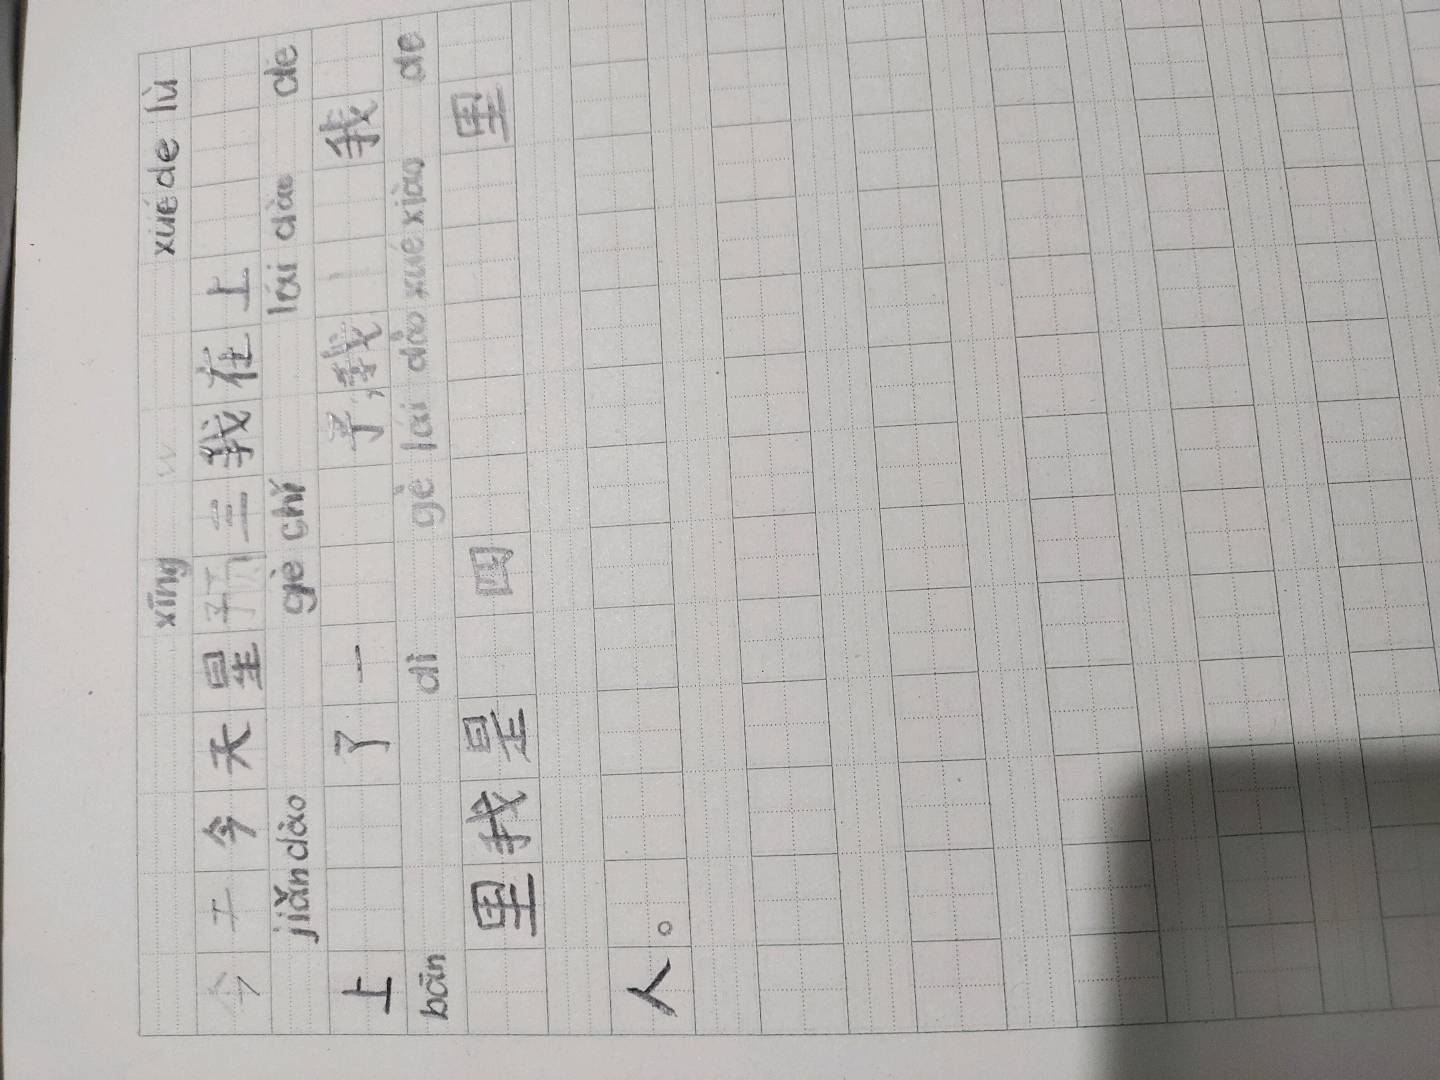 xīng xué de lù
今天星三我在上
jiǎn dào gè chǐ lái dào de
上了一子,我我
bān dì gè lái dào xué xiào de
里我是四里
人。